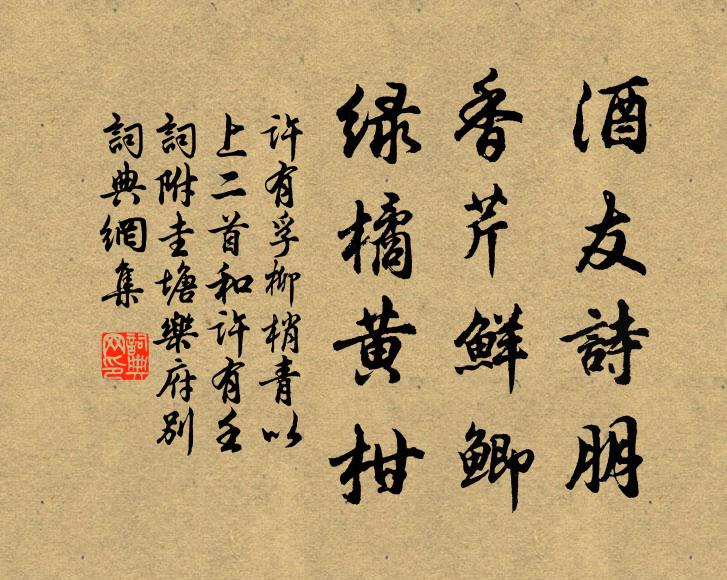 酒友詩朋
香芹鮮鯽
绿橘黄柑
許有孚柳梢青以
上二首和許有壬
詞附圭塘樂府别
詞典網集
詞典网印